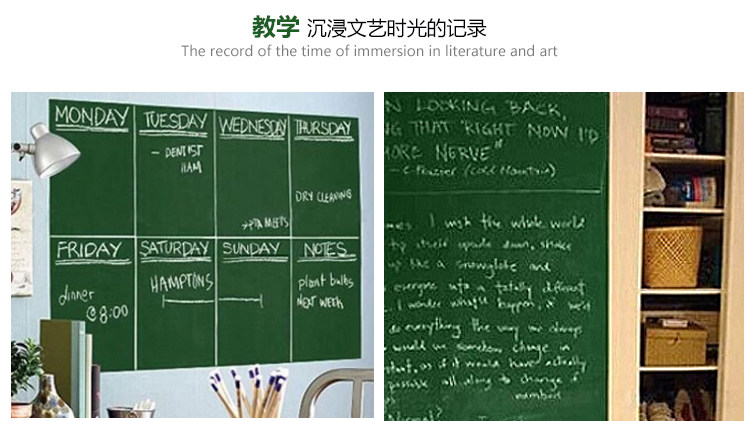 教学 沉浸文艺时光的记录
The record of the time of immersion in literature and art
MONDAY
TUESDAY
WEDNESDAY
THURSDAY
- DENTIST
11AM
DRY CLEANING
PTA MEETS
FRIDAY
SATURDAY
SUNDAY
NOTES
dinner
@8:00
HAMPTONS
plant bulbs
NEXT WEEK
N LOOKING BACK,
NG THAT "RIGHT NOW I'D
MORE NERVE"
(Cold Mountain)
I wish the whole world
itself upside down, shake
up like a snowglobe and
everyone into a totally different
I wonder what'd happen, if we'd
do everything the way we always
would we somehow change in
as if it would have actually
possible all along to change
numbers